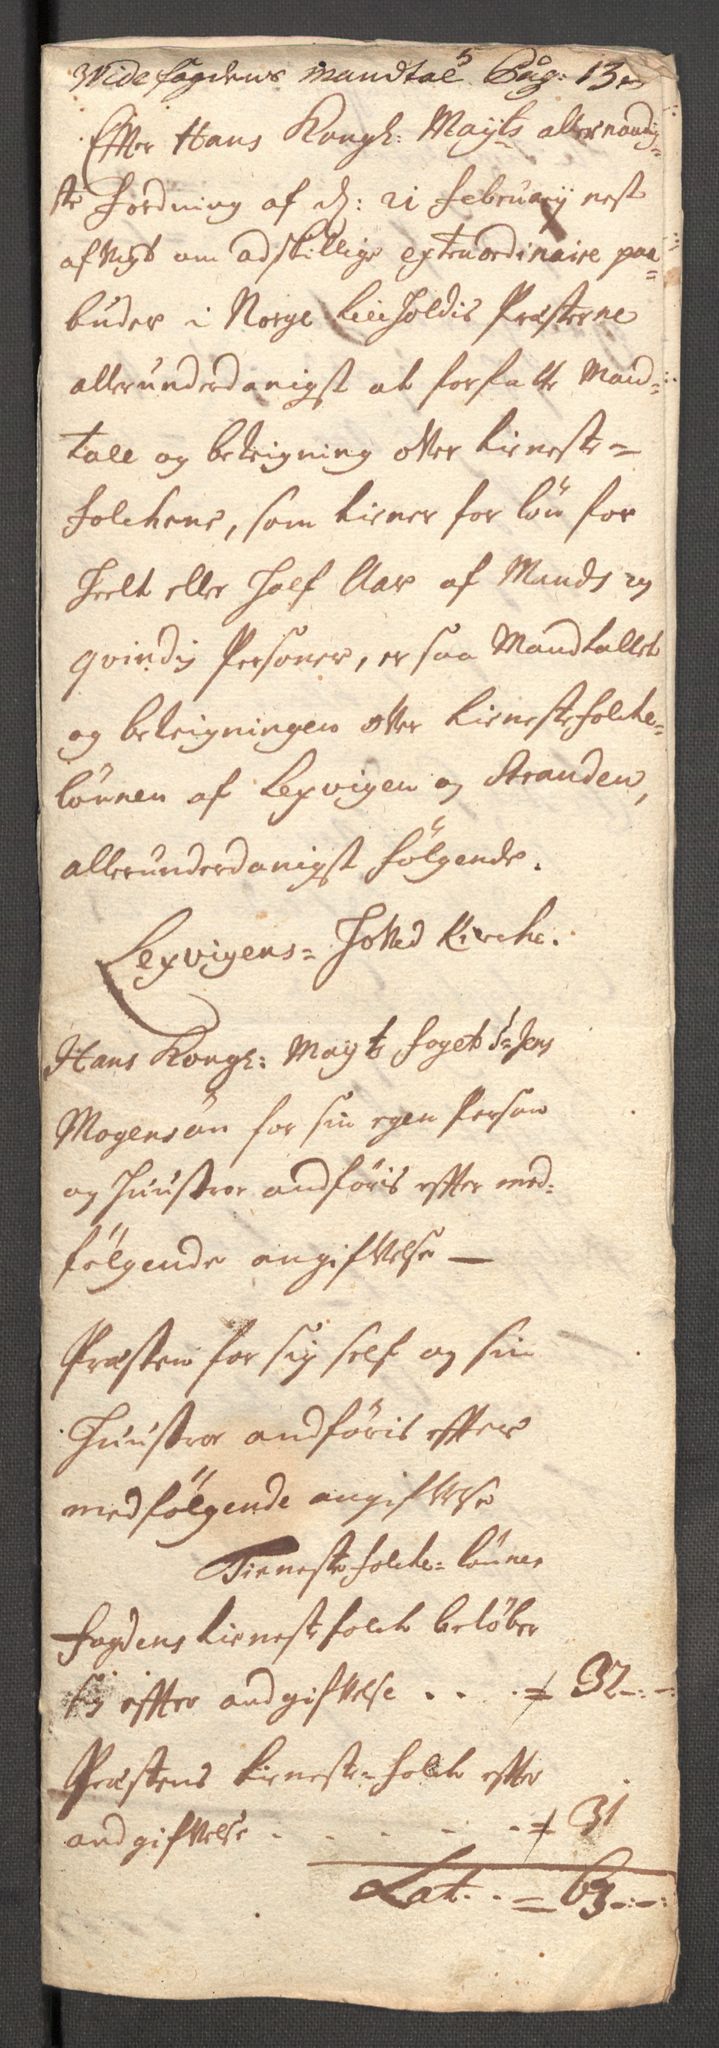 Vide fogdens mandtals Pag: 13
Effter Hans Kongl: Mayts allernaadig=
ste Fordning af d: 21 February nest
afvigt om adskillige extraordinaire paa=
buder i Norge Præsterne
allerunderdanigst at forfatte Mand=
tall og beleigning over tieneste=
folchene, som tiener for lön for
heelt eller half Aar af Mands og
qvindis Personer, er saa Mandtallet
og beleigningen over tienestefolche=
lönnen af Lexvigen og Stranden,
allerunderdanigst fölgende.
Lexvigens= Hoved Kirche.
Hans Kongl: Mayts foget Sr Jens
Mogensön for sin egen Person
og huustroe andföris effter med=
fölgende angifvelse —
Præsten for sig self og sin
huustroe andföris effter
medfölgende angifvelse
Tienestefolche= lönner
fogdens tienestefolch belöber
sig effter andgifvelse . . . 32 -:-
Præstens tieneste= folch effter
andgifvelse . . . . . . 31
Lat. . = 63 -:-: